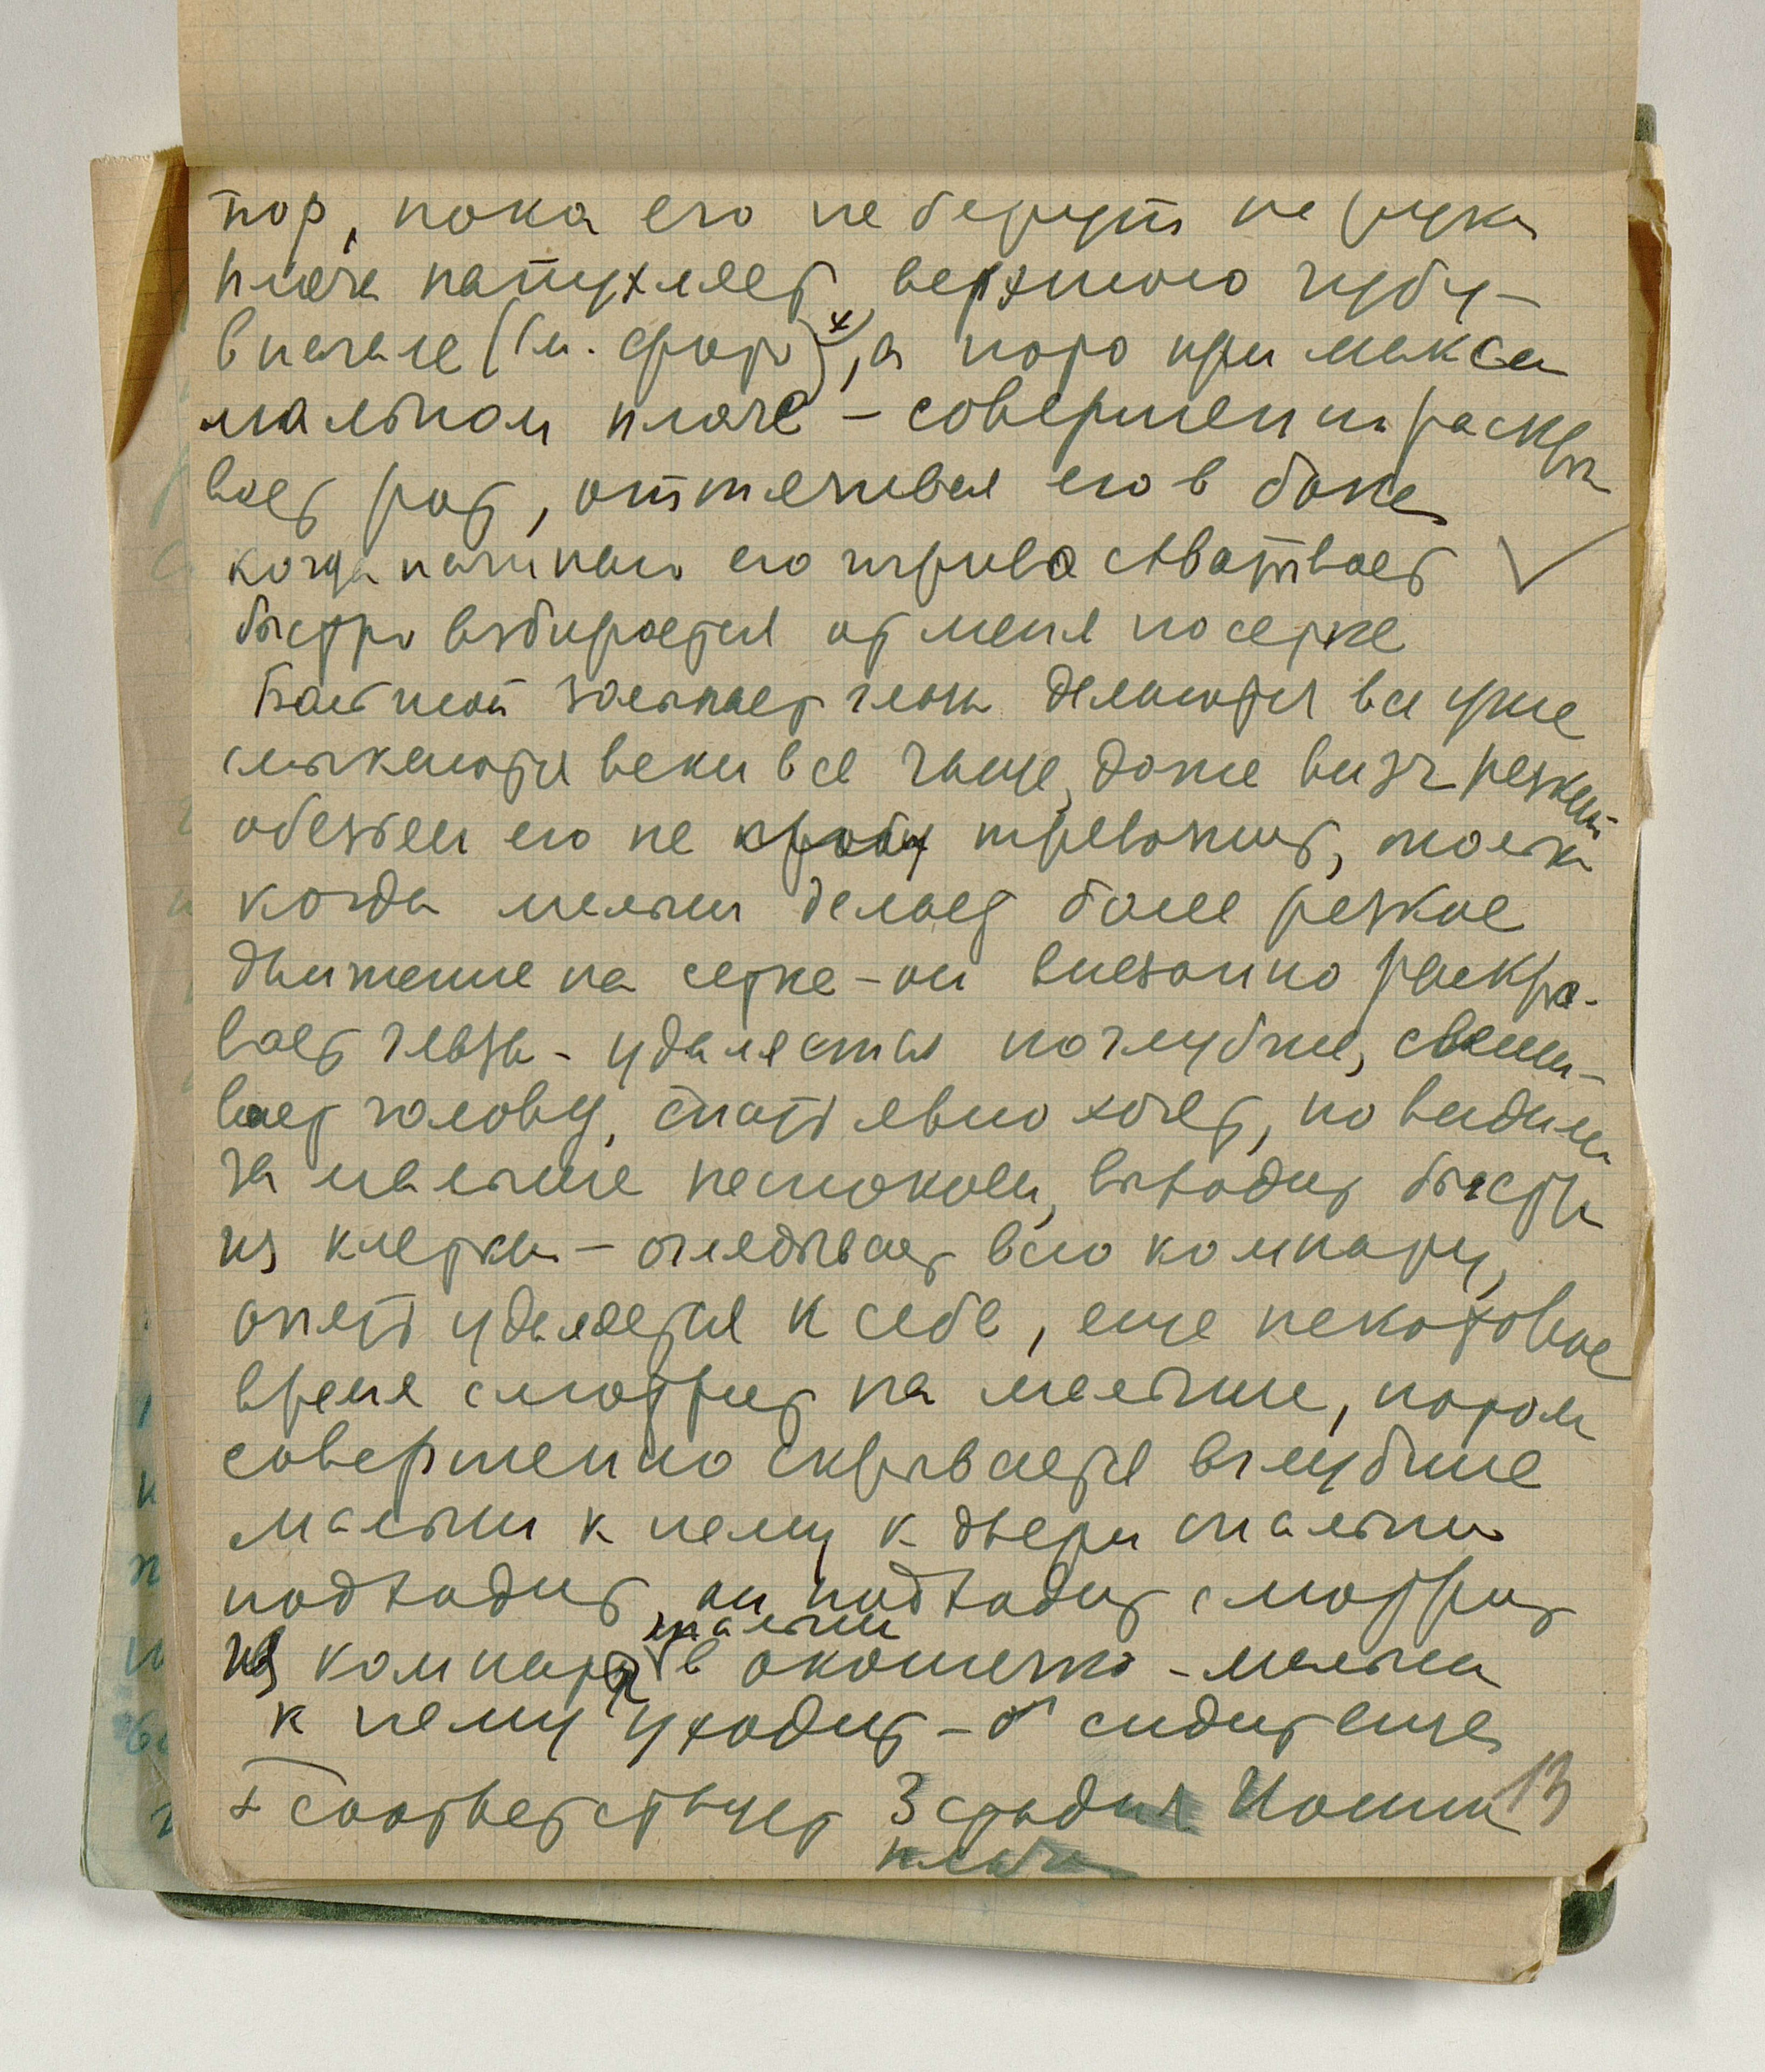 пор, пока его не берут на руки
плача напухляет верхнюю губу –
вначале (см. фото)ˣ⁾, а пото при макси
мальном плаче – совершенно раскры
вает рот, оттягивая его в бока
когда начинаю его
быстро взбирается от меня по сетке
Большой засыпает глаза делаются все уже
смыкаются веки все чаще, даже визг резкий
обезьян его не тревожит, только
когда малыш делает более резкое
движение на сетке – он внезапно раскры-
вает глаза – удаляется поглубже, свеши-
вает голову, спать явно хочет, но видимо
за малыша неспокоен, выходит быстро
из клетки – оглядывает всю компату,
опять удаляется к себе, еще некоторое
время смотрит на малыша, потом
совершенно скрывается вглубине
малыш к нему к двери спальни
подходит, он подходит смотрит
из компаты в окошечко – малыш
спальни
к нему уходит – б сидит еще
× Соответствует 3 стадии Иони 13
плача